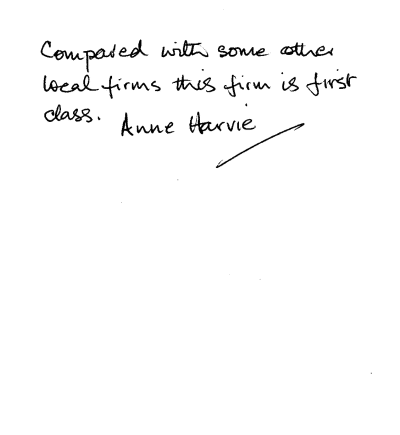 Compared with some other
local firms this firm is first
class. Anne Harvie